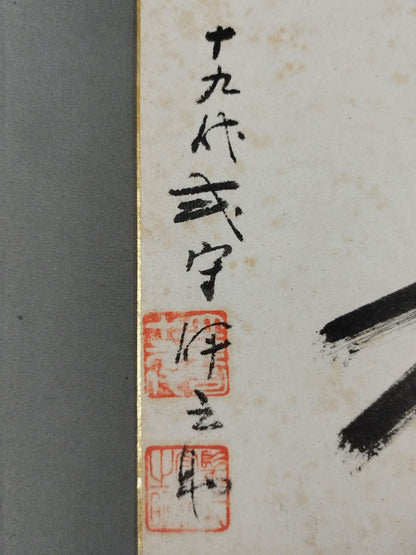 十九代式守伊之助